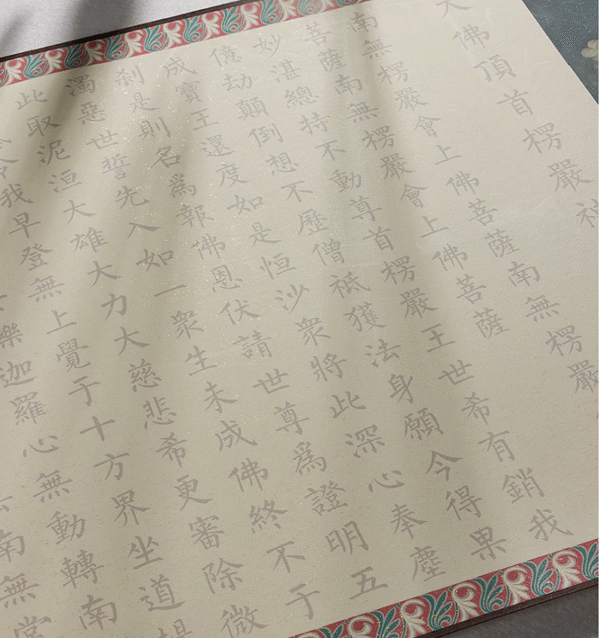 大佛頂首楞嚴神
南無楞嚴會上佛菩薩南無楞嚴
菩薩南無楞嚴會上佛菩薩
妙湛總持不動尊首楞嚴王世希有銷我
億劫顛倒想不歷僧祇獲法身願今得果
成寶王還度如是恒沙衆將此深心奉塵
剎是則名爲報佛恩伏請世尊爲證明五
濁惡世誓先入如一衆生未成佛終不于
此取泥洹大雄大力大慈悲希更審除微
我早登無上覺于十方界坐道場
樂迦羅心無動轉南
南無常